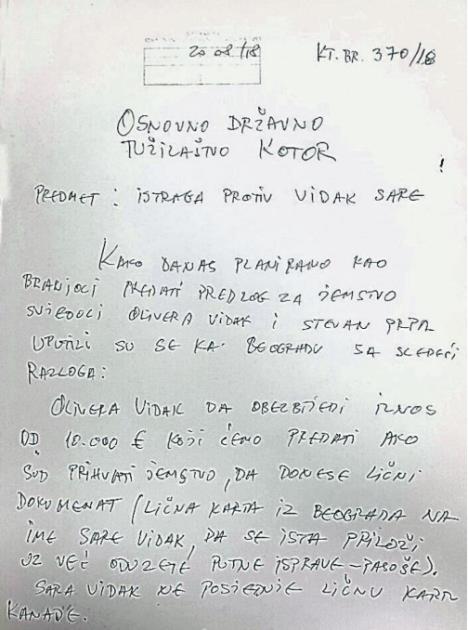 20 08/18 KT. BR. 370/18
OSNOVNO DRŽAVNO
TUŽILAŠTVO KOTOR
!
PREDMET: ISTRAGA PROTIV VIDAK SARE
KAKO DANAS PLANIRANO KAO
BRANIOCI PREDATI PREDLOG ZA JEMSTVO
SVJEDOCI OLIVERA VIDAK I STEVAN
UPUTILI SU SE KA BEOGRADU SA SLEDEĆI
RAZLOGA:
OLIVERA VIDAK DA OBEZBIJEDI IZNOS
OD 10.000 € KOJI ĆEMO PREDATI AKO
SUD PRIHVATI JEMSTVO, DA DONESE LIČNI
DOKUMENAT (LIČNA KARTA IZ BEOGRADA NA
IME SARE VIDAK, DA SE ISTA PRILOŽI
UZ VEĆ ODUZETE PUTNE ISPRAVE-PASOŠE).
SARA VIDAK NE POSJEDUJE LIČNU KARTU
KANADE.